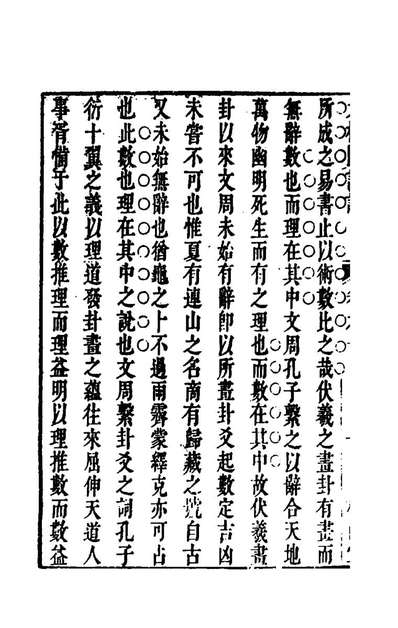 所成之易書止以術數比之哉伏羲之畫卦有畫而
無辭數也而理在其中文周孔子繫之以辭合天地
萬物幽明死生而有之理也而數在其中故伏羲畫
卦以來文周未始有辭卽以所畫卦爻起數定吉凶
未嘗不可也惟夏有連山之名商有歸藏之號自古
又未始無辭也猶龜之卜不過雨霽蒙驛克亦可占
也此數也理在其中之說也文周繫卦爻之詞孔子
衍十翼之義以理道發卦畫之蘊往來屈伸天道人
事胥備于此以數推理而理益明以理推數而數益